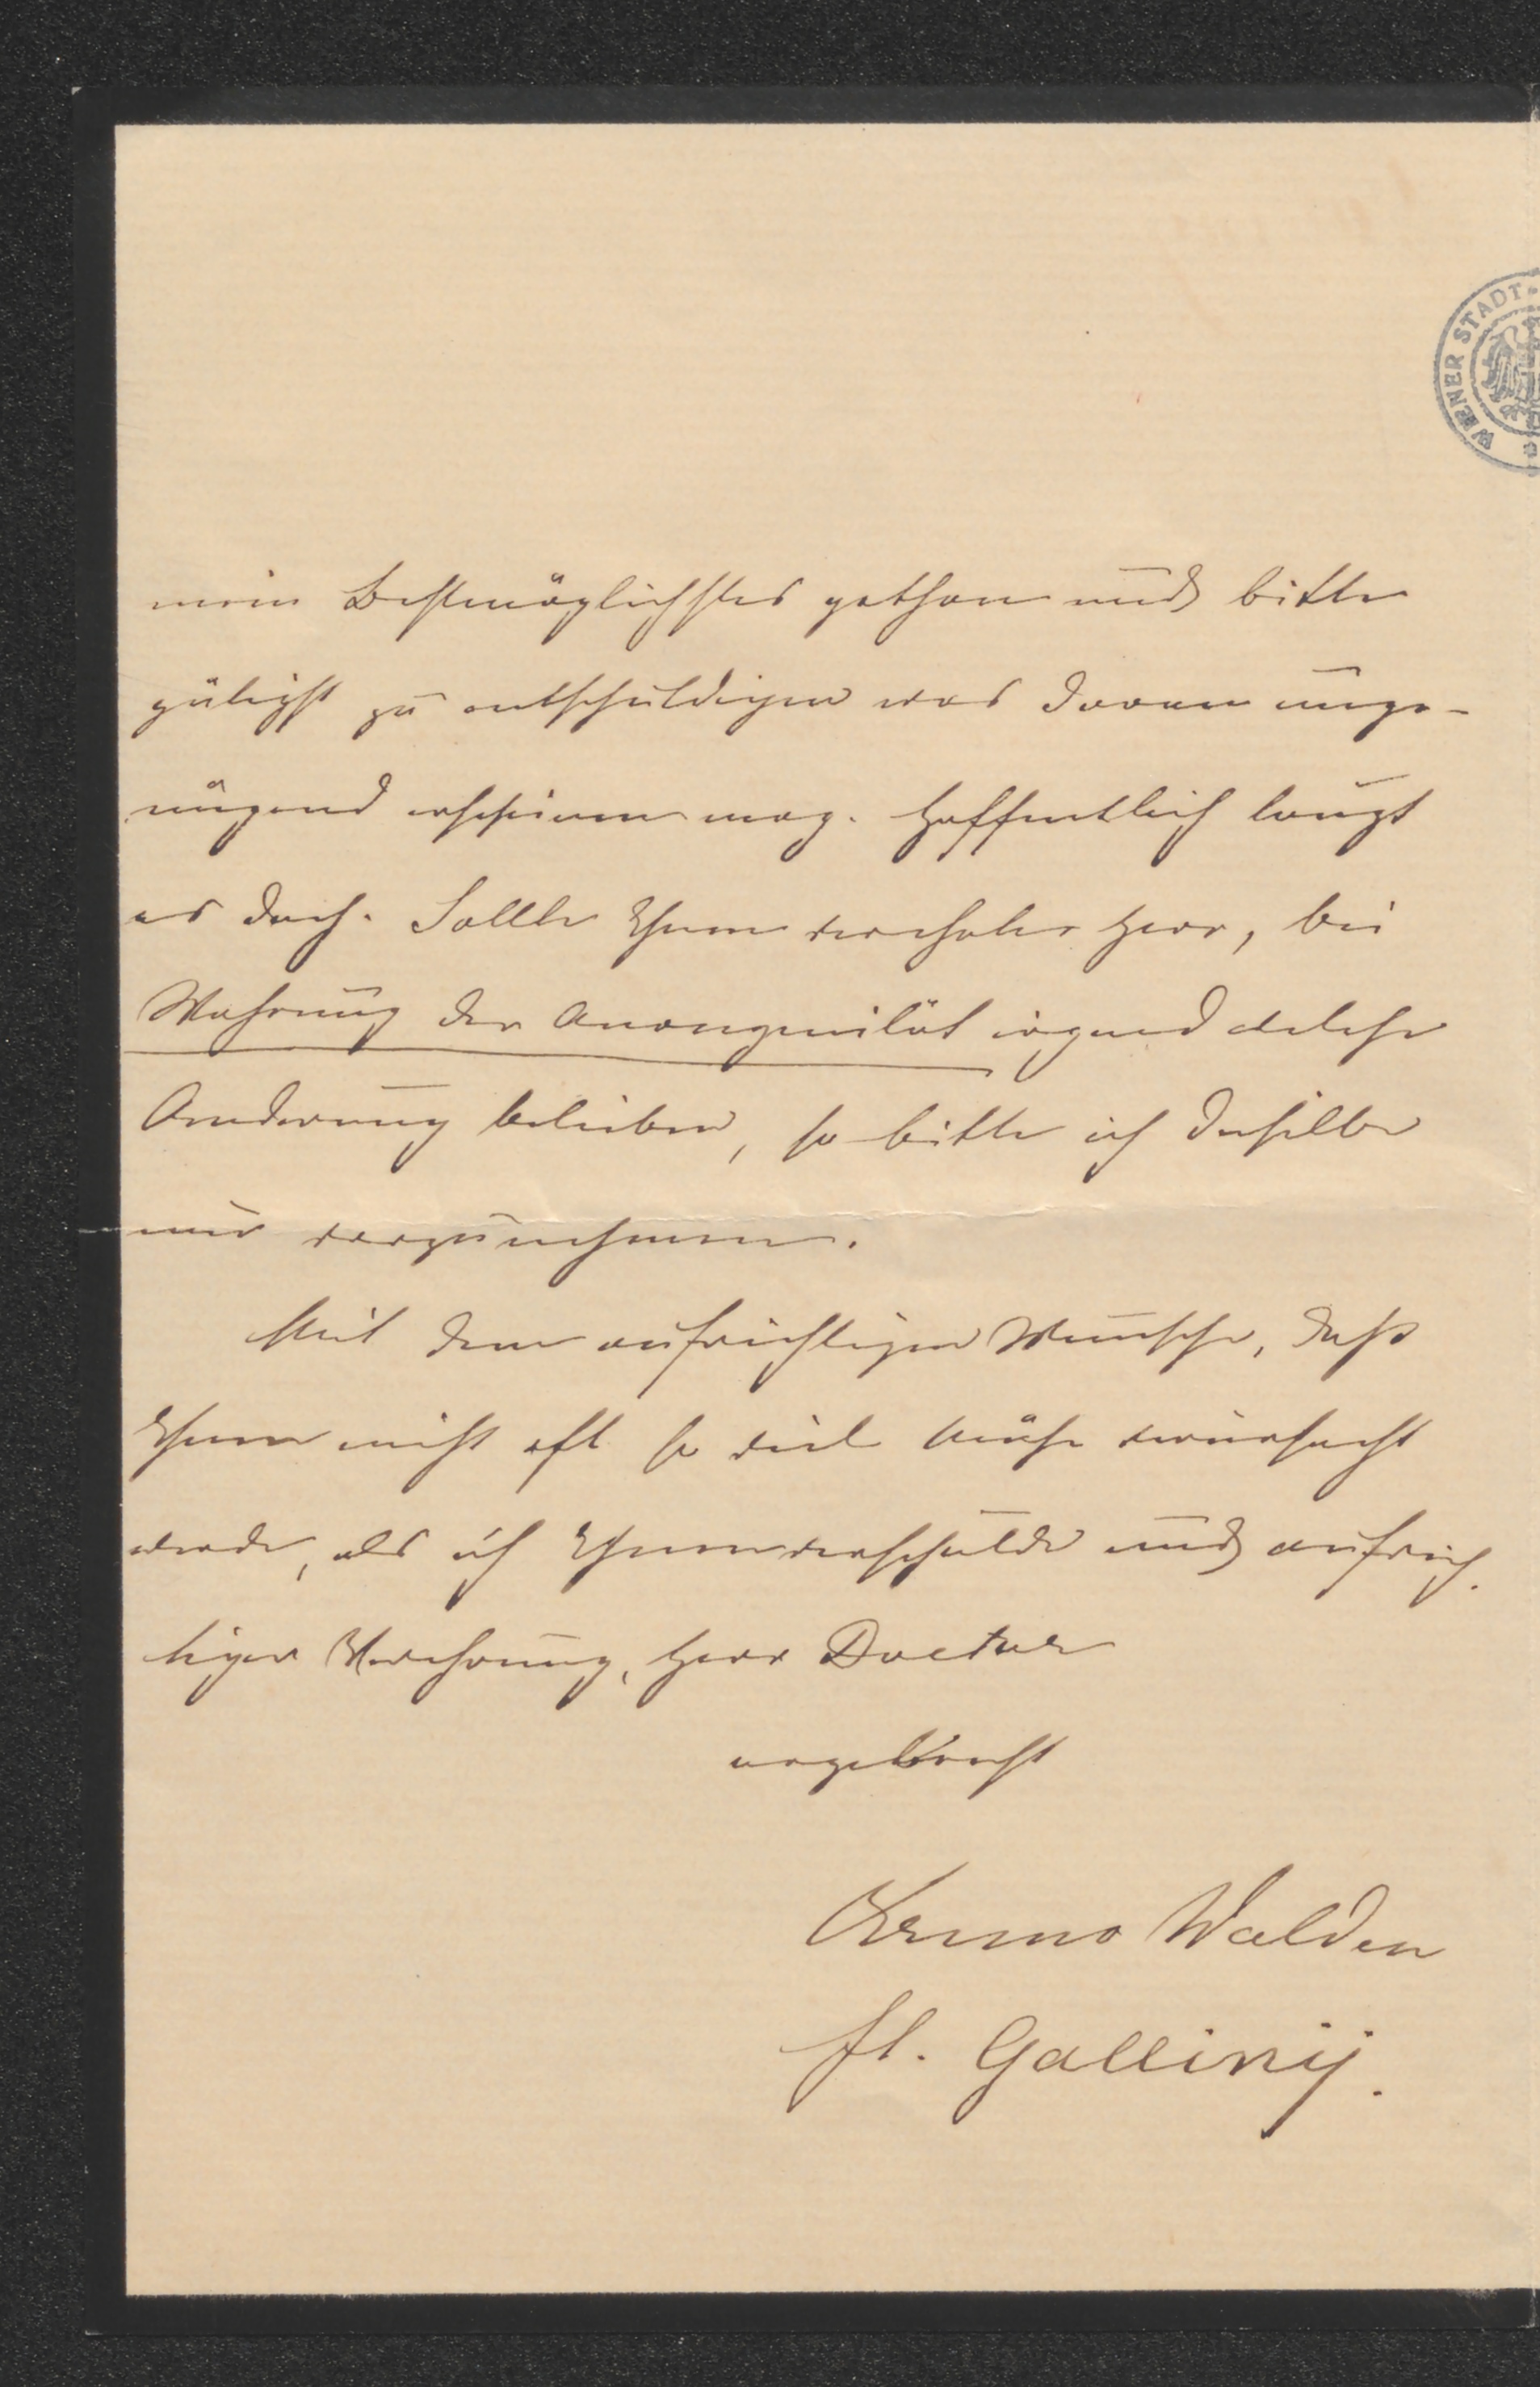 WIENER STADT-
mein Bestmöglichstes gethan und bitte
gütigst zu entschuldigen was daran unge-
nügend erscheinen mag. Hoffentlich langt
es doch. Sollte Ihnen verehrter Herr, bei
Wahrung der Anonymität irgend welche
Anderung belieben, so bitte ich dieselbe
nur vorzunehmen.
Mit dem aufrichtigen Wunsche, daß
Ihnen nicht oft so viel Mühe verursacht
werde, als ich Ihnen verschulde und aufrich-
tiger Verehrung, Herr Doctor
ergebenst
Bruno Walden
fl. Galliny.